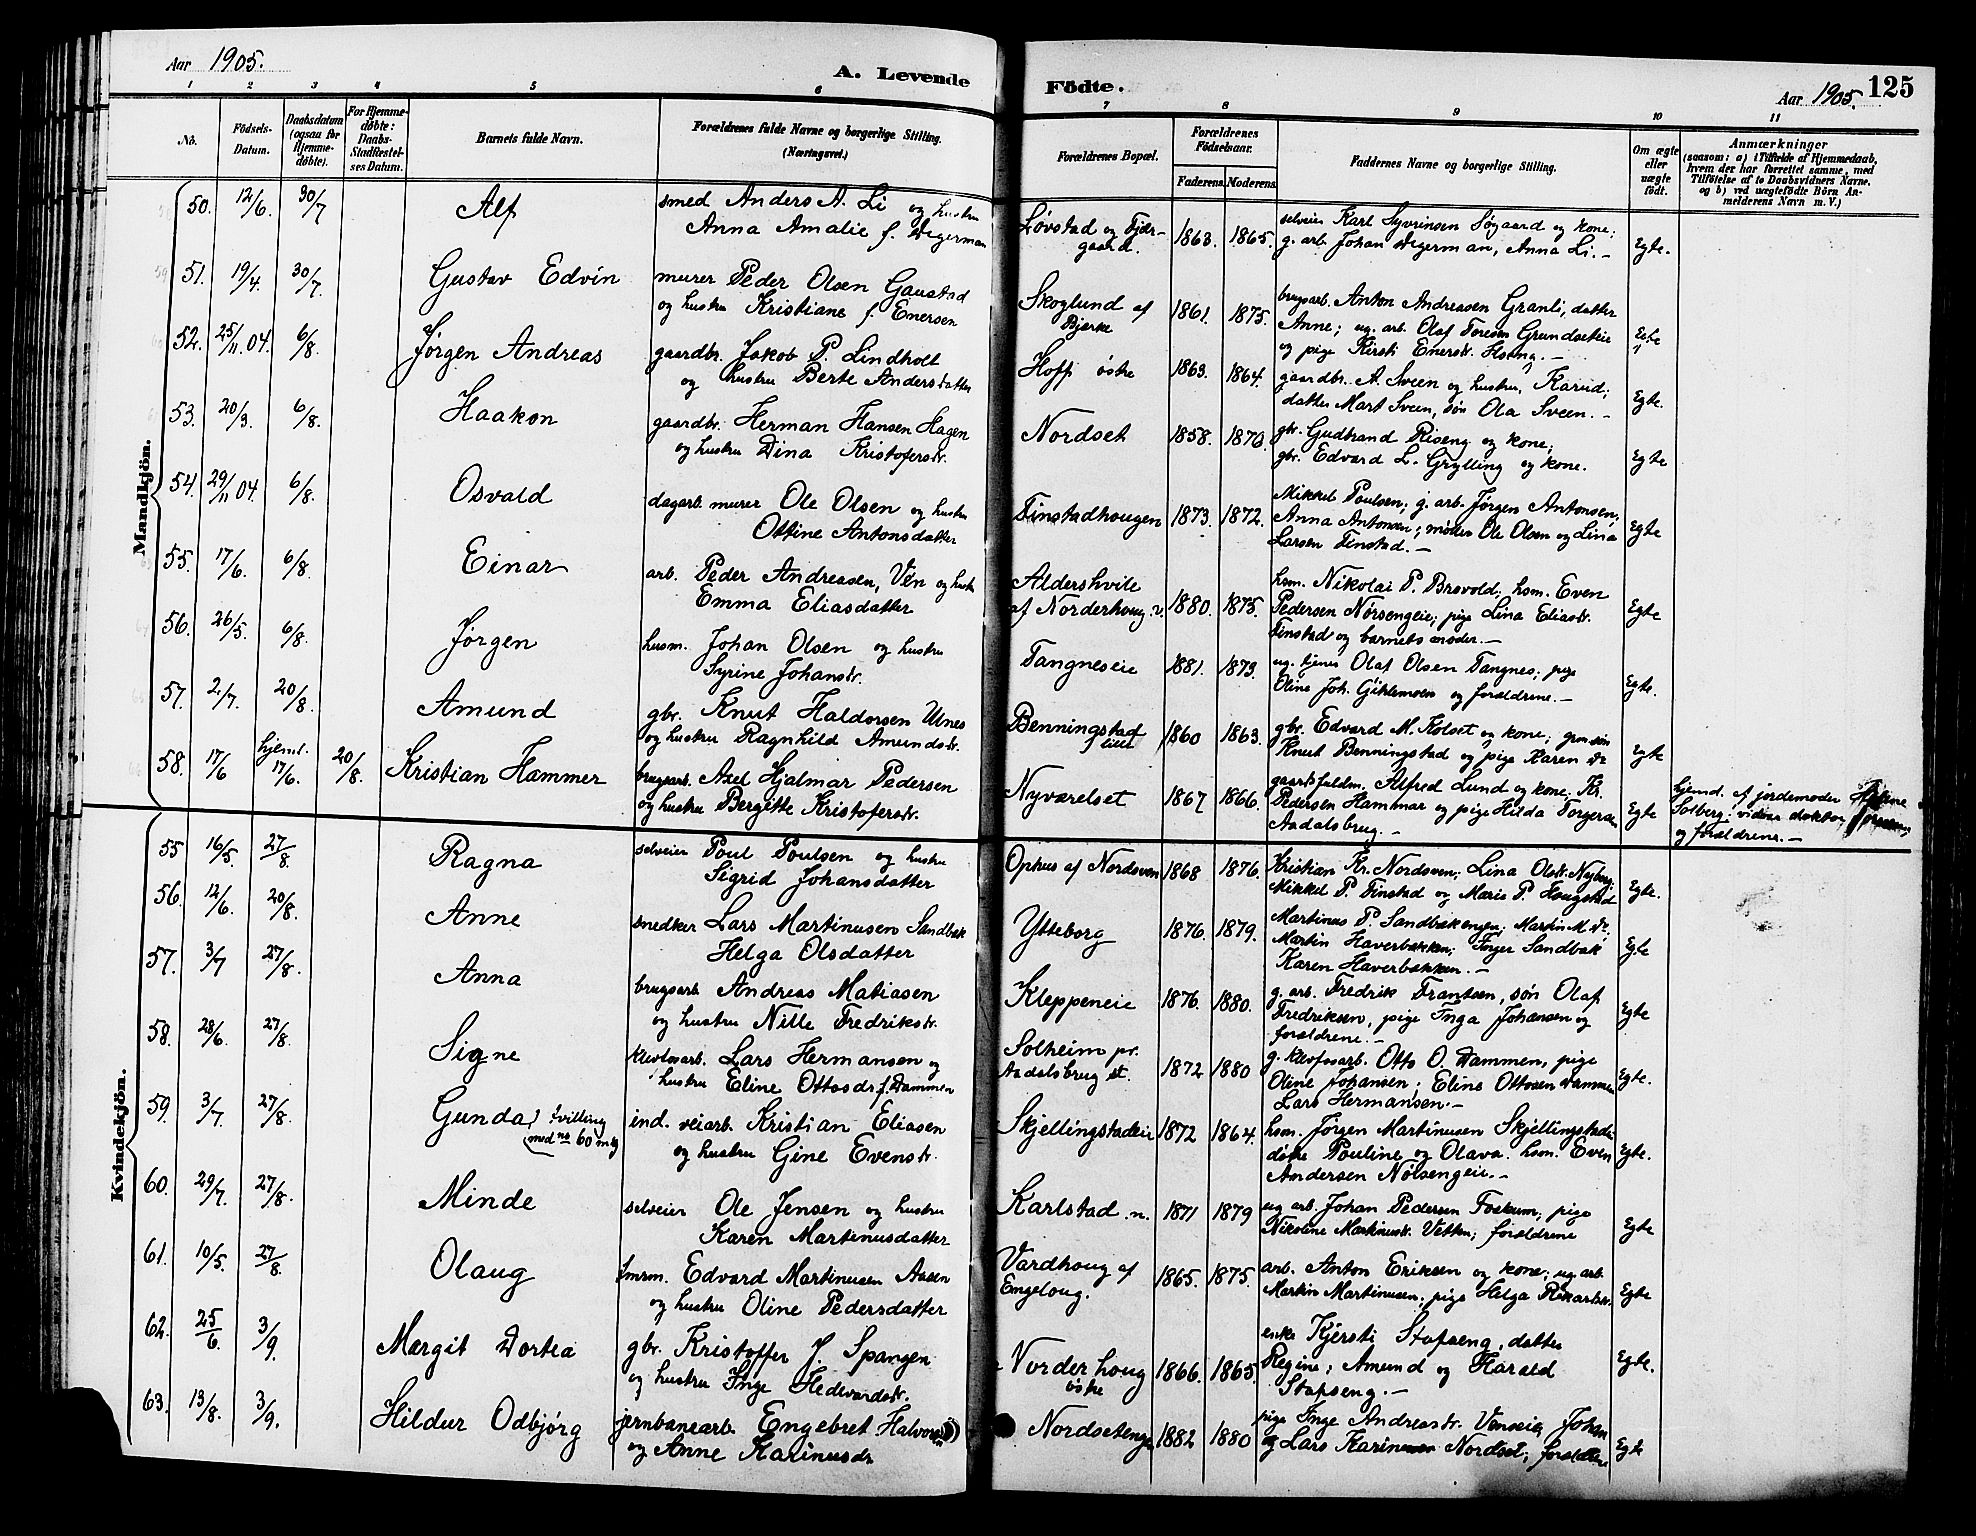 Aar 1905.
A. Levende
Fødte.
Aar 1905.
125
1 2 3 4 5 6 7 8 9 10 11
No.
Fødsels-
Datum.
Daabsdatum
(ogsaa for
Hjemme-
døbte).
For Hjemme-
døbte:
Daabs-
Stadfæstel-
ses Datum.
Barnets fulde Navn.
Forældrenes fulde Navne og borgerlige Stilling.
(Næringsvei.)
Forældrenes Bopæl.
Forældrenes
Fødselsaar.
Faderens. Moderens.
Faddernes Navne og borgerlige Stilling.
Om ægte
eller
uægte
født.
Anmærkninger
(saasom: a) i Tilfælde af Hjemmedaab,
hvem der har forrettet samme, med
Tilføielse af to Daabsvidners Navne,
og b) ved uægtefødte Børn An-
melderens Navn m. V.)
Mandkjøn.
50. 12/6. 30/7 Alf smed Anders A. Li og hustru
Anna Amalie f. Degerman
Løvstad og Fjær-
gaard. 1863. 1865. selveier Karl Syvrinsen Søgaard og kone;
g. arb. Johan Degerman, Anna Li. - Egte.
51. 19/4. 30/7. Gustav Edvin murer Peder Olsen Gaustad
og hustru Kristiane f. Enersen
Skoglund af
Bjerke 1861. 1875. brugsarb. Anton Andreasen Granli, datter
Anne; ug. arb. Olaf Toresen Grundseteie
og pige Kirsti Enerstr. Hoeng. - Egte
52. 25/11.04. 6/8. Jørgen Andreas gaardbr. Jakob P. Lindholt
og hustru Berte Andersdatter
Hoff østre 1863. 1864. gaardbr. A. Sveen og hustru, Karud;
datter Mart Sveen, søn Ola Sveen. - Egte.
53. 20/3. 6/8. Haakon gaardbr. Herman Hansen Hagen
og hustru Dina Kristofersdr.
Nordset 1858. 1870. gbr. Gudbrand Riseng og kone;
gbr. Edvard L. Grylling og kone. Egte
54. 29/11 04. 6/8. Osvald dagarb. murer Ole Olsen og hustru
Ottine Antonsdatter
Finstadhougen 1873. 1872. Mikkel Poulsen; g. arb. Jørgen Antonsen,
Anna Antonsen; møller Ole Olsen og Lina
Larsen Finstad. - Egte
55. 17/6. 6/8. Einar arb. Peder Andreasen, Ven og hustru
Emma Eliasdatter
Aldershvile
af Norderhoug v. 1880. 1875. hsm. Nikolai P. Brovold; hsm. Even
Pedersen Norsengeie; pige Lina Eliasdr.
Finstad og barnets moder. - Egte
56. 26/5. 6/8. Jørgen husm. Johan Olsen og hustru
Syrine Johansdr.
Tangneseie 1881. 1873. ug. tjener Olaf Olsen Tangnes; pige
Oline Joh. Gihlemoen og forældrene. - Egte.
57. 2/7. 20/8. Amund gbr. Knut Haldorsen Ulnes
og hustru Ragnhild Amundsdr.
Benningstad
lille 1860 1863. gbr. Edvard M. Kolset og kone; grm. søn
Knut Benningstad og pige Karen Do Egte
58. 17/6 hjemd.
17/6. 20/8. Kristian Hammer brugsarb. Axel Hjalmar Pedersen
og hustru Bergitte Kristofersdr.
Nyværelset 1867 1866. gaardsfuldm. Alfred Lund og kone; Kr.
Pedersen Hammar og pige Hilda Torgersen
Aadalsbrug. - Egte hjemd. af jordemoder
Solberg; vidner doktor
og forældrene. -
Kvindekjøn.
55 16/5. 27/8. Ragna selveier Poul Poulsen og hustru
Sigrid Johansdatter
Ophus af Nordsven 1868 1876. Kristian Kr. Nordsven; Lina Olsdr. Nyberg;
Mikkel P. Finstad og Maris P. Hougstad Egte.
56. 12/6. 20/8. Anne snedker Lars Martinusen Sandbæk
Helga Olsdatter
Ytteborg 1876. 1879. Martinus P. Sandbækengen; Martin M. Do;
Martin Haverbækken; Inger Sandbæk
Karen Haverbækken. - Egte
57. 3/7 27/8. Anna brugsarb Andreas Matiasen
og hustru Nille Fredriksdr.
Kleppeneie 1876. 1880. g. arb. Fredrik Frantsen, søn Olaf
Fredriksen, pige Inga Johansen og
forældrene. - Egte
58. 28/6. 27/8. Signe klevfosarb. Lars Hermansen og
hustru Eline Ottosdr f. Dammen
Solheim pr.
Aadalsbrug st. 1872 1880 g. klevfosarb. Otto O. Dammen, pige
Oline Johansen; Eline Ottosen Dammen
Lars Hermansen. - Egte.
59. 3/7. 27/8. Gunda tvilling
med no 60 mkj ind. veiarb. Kristian Eliasen
og hustru Gine Evensdr.
Skjellingstadeie 1872 1864. hsm. Jørgen Martinusen Skjellingstadeie
døtre Pouline og Olava. hsm. Even
Andersen Nølsengeie. - Egte.
60. 29/7. 27/8. Minde selveier Ole Jensen og hustru
Karen Martinusdatter
Karlstad n. 1871 1879 ug arb. Johan Pedersen Foskum; pige
Nikoline Martinusdr. Vetten; forældrene Egte
61. 10/5. 27/8. Olaug tmrm. Edvard Martinusen Aasen
og hustru Oline Pedersdatter
Vardhoug af
Engeloug. 1865. 1875. arb. Anton Eriksen og kone; ug. arb.
Martin Martinusen; pige Helga Rikartsdr. Egte
62. 25/6. 3/9. Margit Dortea gbr. Kristoffer J. Spangen
og hustru Inge Hedevardsdr.
Norderhoug
østre 1866. 1865. enke Kjersti Stafseng, datter
Regine; Amund og Harald
Stafseng. - Egte.
63. 13/8. 3/9. Hildur Odbjørg jernbanearb. Engebret Halvorsen
og Anne Karinusdr
Nordsetenge 1882 1880 pige Inge Andreasdr. Venseie, Johan
og Lars Karinusen Nordset; forældrene Egte